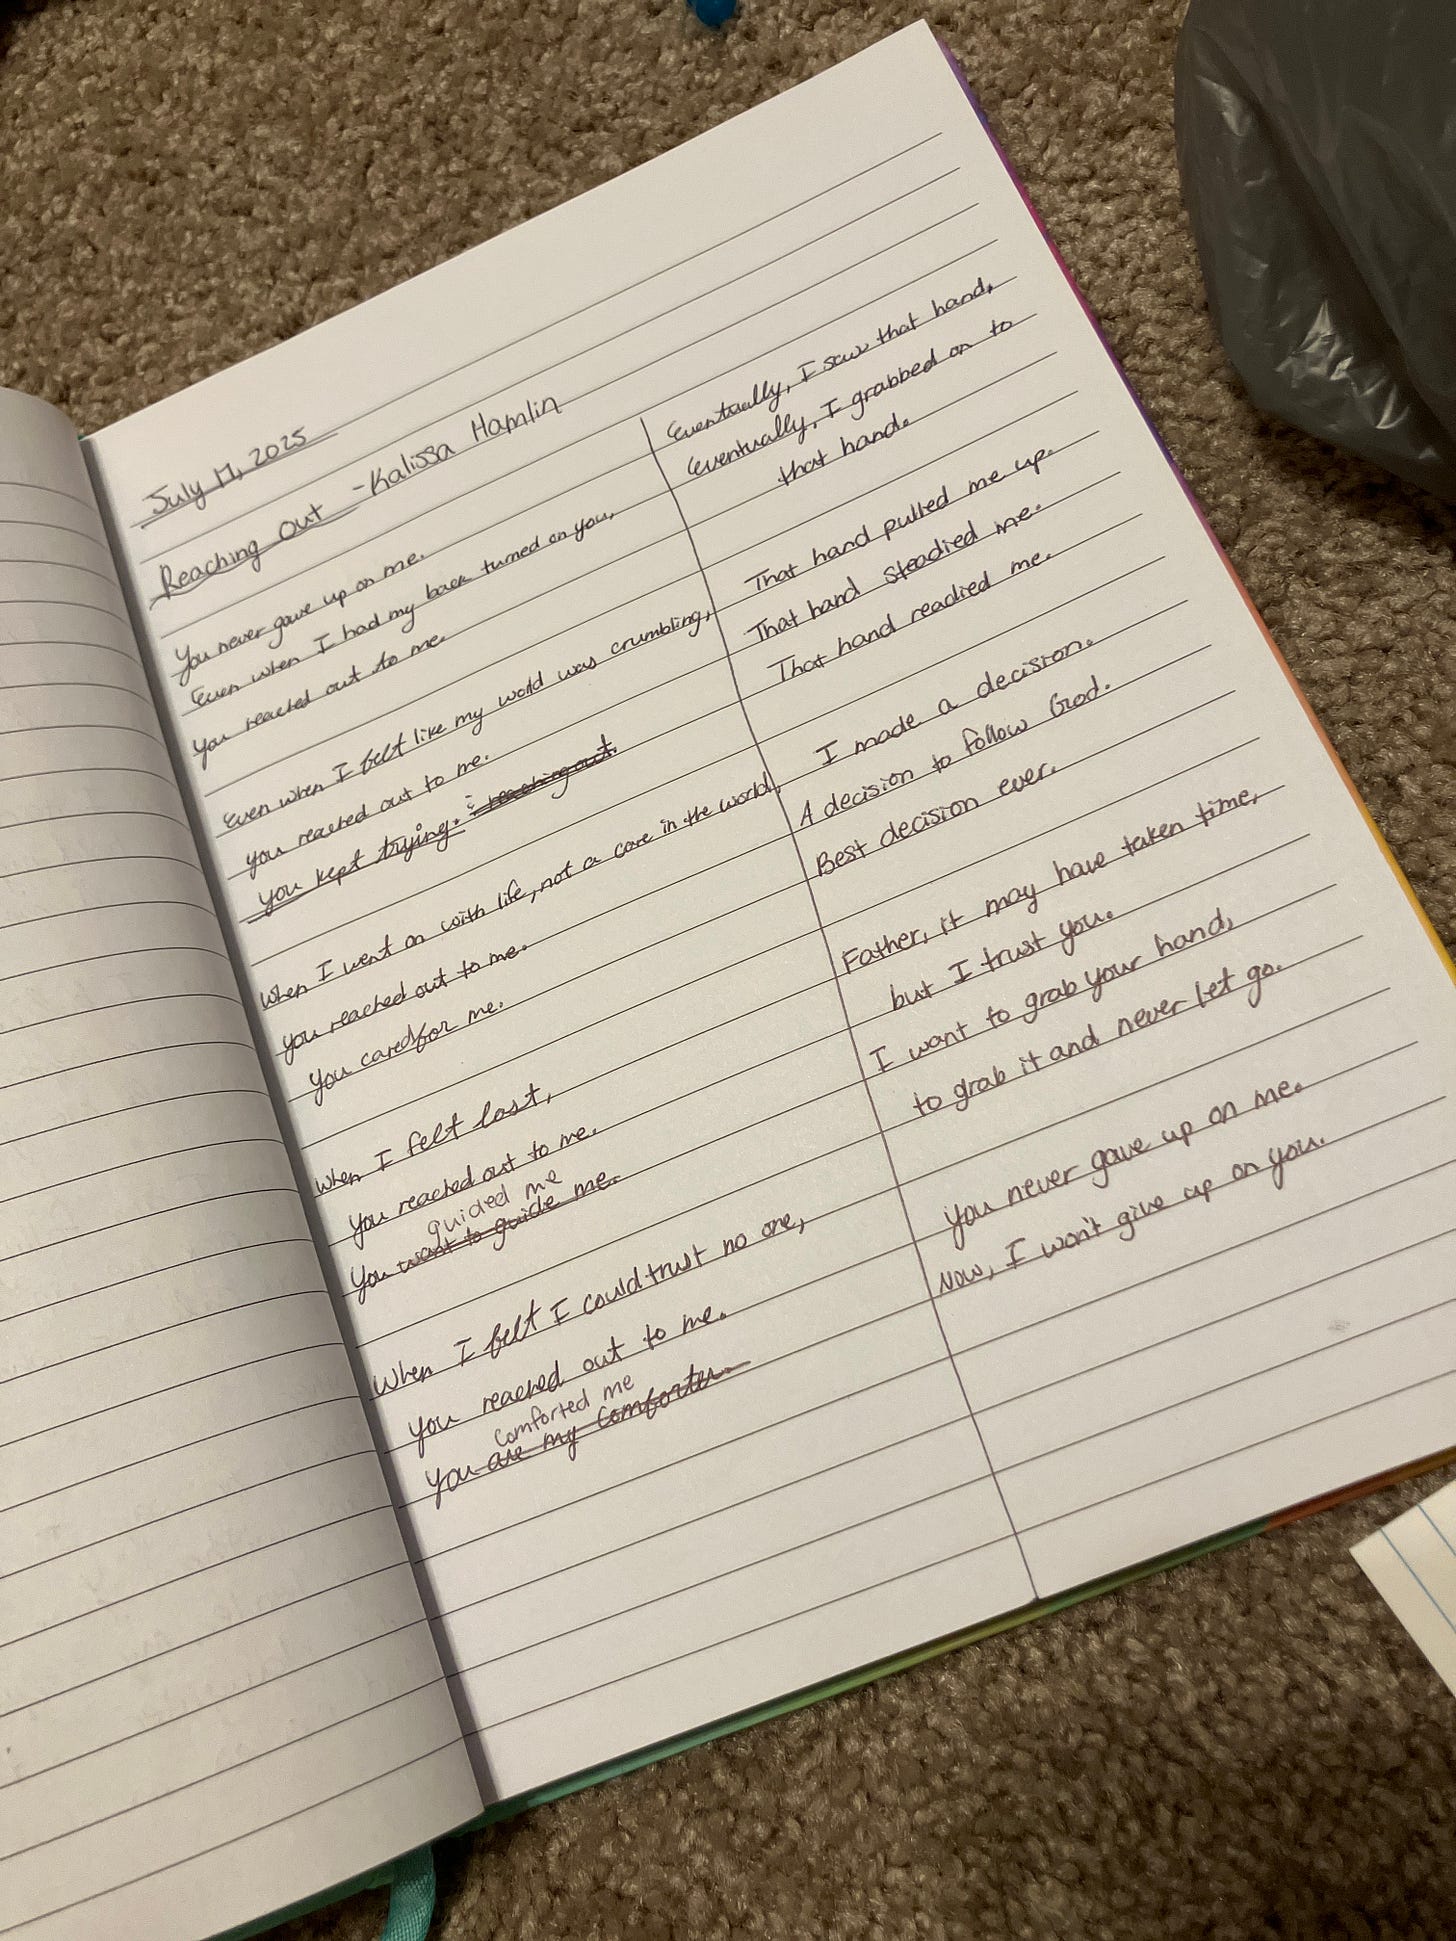 July 17, 2025
Reaching Out - Kalissa Hamlin
You never gave up on me.
Even when I had my back turned on you,
you reached out to me.
Even when I felt like my world was crumbling,
you reached out to me.
you kept trying. reaching out.
When I went on with life, not a care in the world,
you reached out to me.
you cared for me.
When I felt lost,
you reached out to me.
guided me
you want to guide me.
When I felt I could trust no one,
you reached out to me.
comforted me
you are my comforter.
Eventually, I saw that hand,
eventually, I grabbed on to
that hand.
That hand pulled me up.
That hand steadied me.
That hand readied me.
I made a decision.
A decision to follow God.
Best decision ever.
Father, it may have taken time,
but I trust you.
I want to grab your hand,
to grab it and never let go.
you never gave up on me.
Now, I won't give up on you.